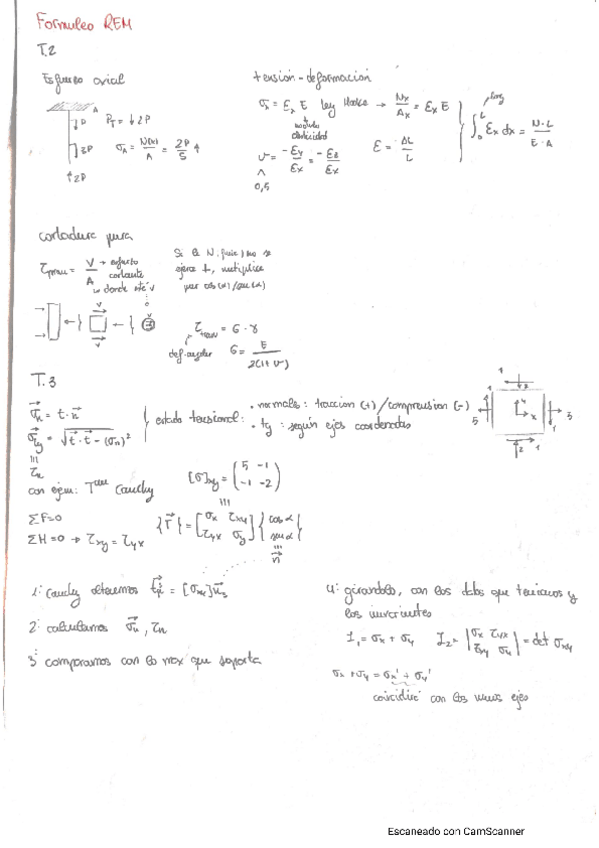 Formuleo REM
T.2
Esfuerzo axial
A
P
2P
2P
P_T = ↓2P
σ_A = N(x)/A = 2P/S ↑
tensión-deformación
σ_x = E_x E ley Hooke → N_x/A_x = E_x E
módulo elasticidad
∫₀ᴸ ε_x dx = N·L / E·A
ν = -ε_y/ε_x = -ε_z/ε_x
ε = ΔL/L
^
0,5
cortadura pura
τ_max = V/A
V → esfuerzo cortante
A → donde esté V
Si el N. no se
ejerce ⊥, multiplica
por cos(α)/sen(α)
V
V
τ = G · γ
def. angular
G = E / 2(1+ν)
T.3
σ_n = t · n
σ_ty = √(t · t - (σ_n)²)
τ_n
estado tensional:
· normales: tracción (+)/compresión (-)
· tg: según ejes coordenados
1
2
5
y
x
5
1
1
2
con ejem: Tma Cauchy
[σ]xy = (5 -1 / -1 -2)
ΣF=0
ΣM=0 → τxy = τyx
{T} = [σx τxy / τyx σy] {cos α / sen α}
n
1: Cauchy obtenemos t = [σxy] n
2: calculamos σn, τn
3: comparamos con lo max que soporta
4: girandolo, con los datos que teníamos y
los invariantes
I₁ = σx + σy I₂ = |σx τyx / τxy σy| = det σxy
σx + σy = σx' + σy'
coincidiré con los nuevos ejes
Escaneado con CamScanner